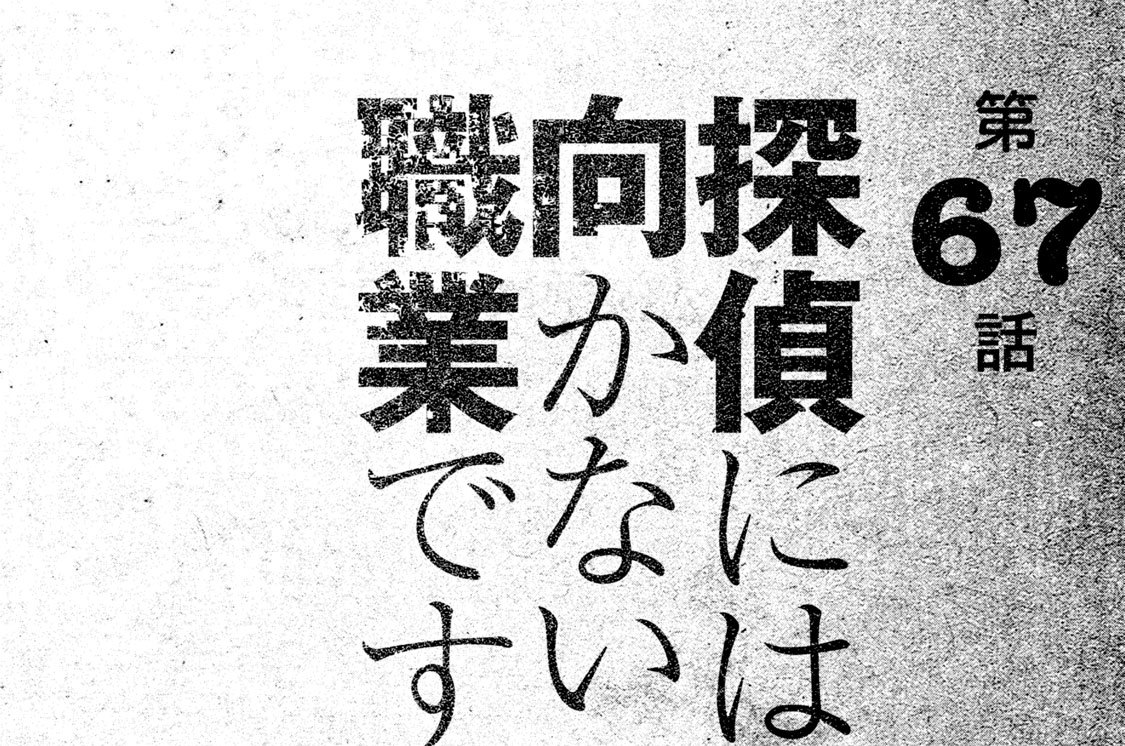 第67話
探偵には
向かない
職業です